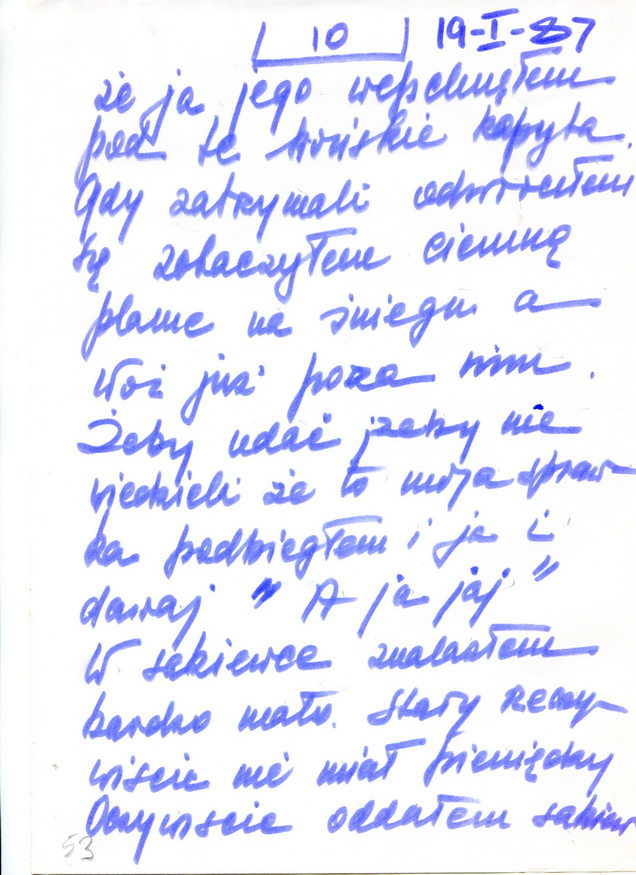 10 19-I-87
że ja jego wepchnąłem
pod te końskie kopyta.
Gdy zatrzymali odwróciłem
się zobaczyłem ciemną
plamę na śniegu a
Wóz już poza nim.
Żeby udać żeby nie
wiedzieli że to moja spraw-
ka podbiegłem i ja i
dawaj " A ja jaj "
W sakiewce znalazłem
bardzo mało. Stary rzeczy-
wiście nie miał pieniędzy
Oczywiście oddałem sakiew
53